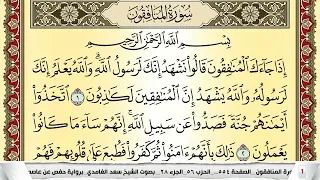 سُورَةُ المُنَافِقُونَ
بِسْمِ اللَّهِ الرَّحْمَٰنِ الرَّحِيمِ
إِذَا جَاءَكَ الْمُنَافِقُونَ قَالُوا نَشْهَدُ إِنَّكَ لَرَسُولُ اللَّهِ وَاللَّهُ يَعْلَمُ إِنَّكَ
لَرَسُولُهُ وَاللَّهُ يَشْهَدُ إِنَّ الْمُنَافِقِينَ لَكَاذِبُونَ ١ اتَّخَذُوا
أَيْمَانَهُمْ جُنَّةً فَصَدُّوا عَنْ سَبِيلِ اللَّهِ إِنَّهُمْ سَاءَ مَا كَانُوا
يَعْمَلُونَ ٢ ذَٰلِكَ بِأَنَّهُمْ آمَنُوا ثُمَّ كَفَرُوا فَطُبِعَ عَلَىٰ قُلُوبِهِمْ فَهُمْ
المنافقون - الصفحة ٥٥٤ - الحزب ٥٦ - الجزء ٢٨ - بصوت الشيخ سعد الغامدي - برواية حفص عن عاصم